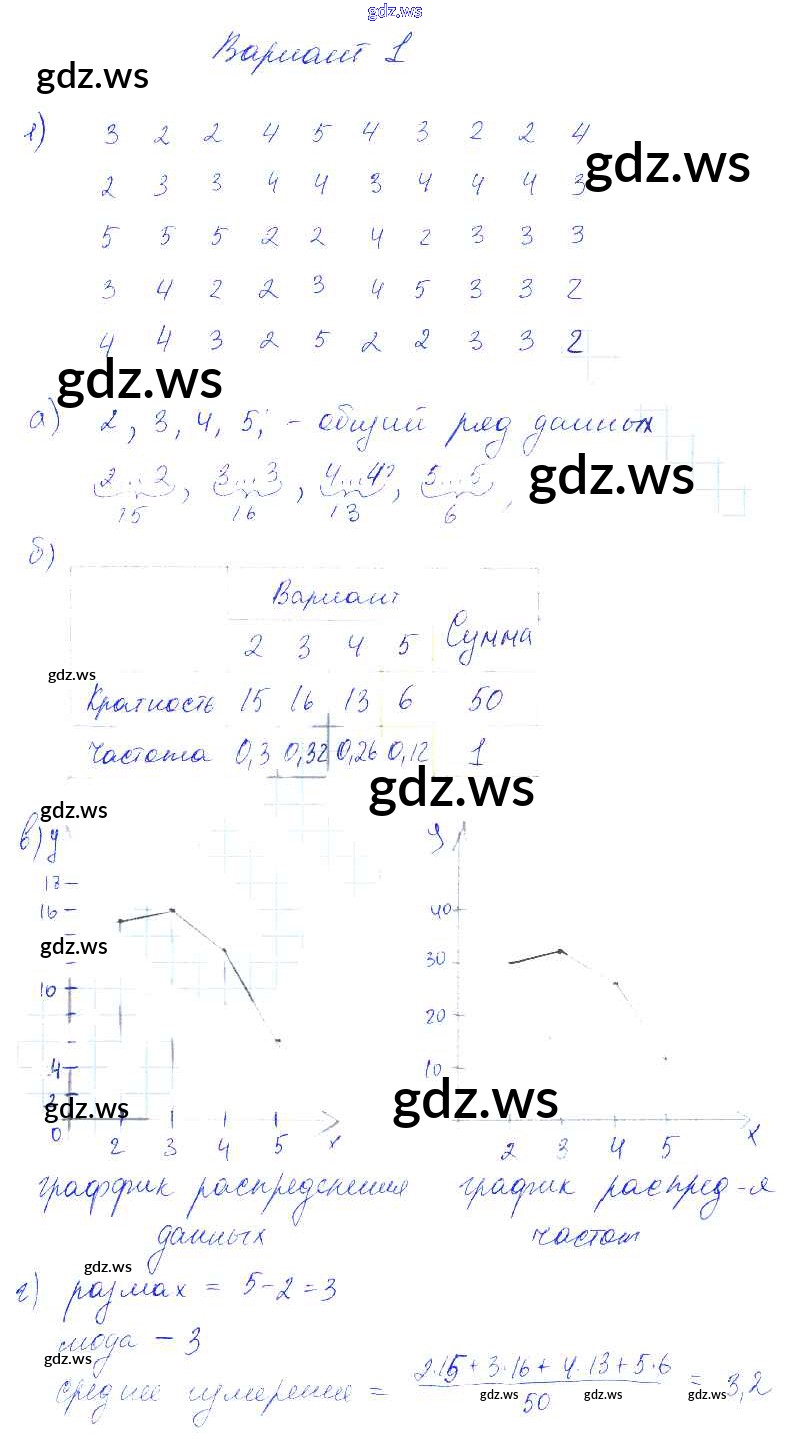 gdz.ws
Вариант 1
gdz.ws
1) 3 2 2 4 5 4 3 2 2 4
gdz.ws
2 3 3 4 4 3 4 4 4 3
5 5 5 2 2 4 2 3 3 3
3 4 2 2 3 4 5 3 3 2
4 4 3 2 5 2 2 3 3 2
gdz.ws
а) 2, 3, 4, 5; - общий ряд данных
2...2, 3...3, 4...4, 5...5,
gdz.ws
15 16 13 6
б)
Вариант
2 3 4 5 Сумма
gdz.ws
Кратность 15 16 13 6 50
Частота 0,3 0,32 0,26 0,12 1
gdz.ws
gdz.ws
в) y
18
16
gdz.ws
10
4
2
gdz.ws
0 2 3 4 5 x
график распределения
данных
y
40
30
20
10
gdz.ws
2 3 4 5 x
график распред-я
частот
gdz.ws
г) размах = 5-2=3
мода - 3
gdz.ws
среднее измерение = 2·15+3·16+4·13+5·6 / 50 = 3,2
gdz.ws gdz.ws gdz.ws